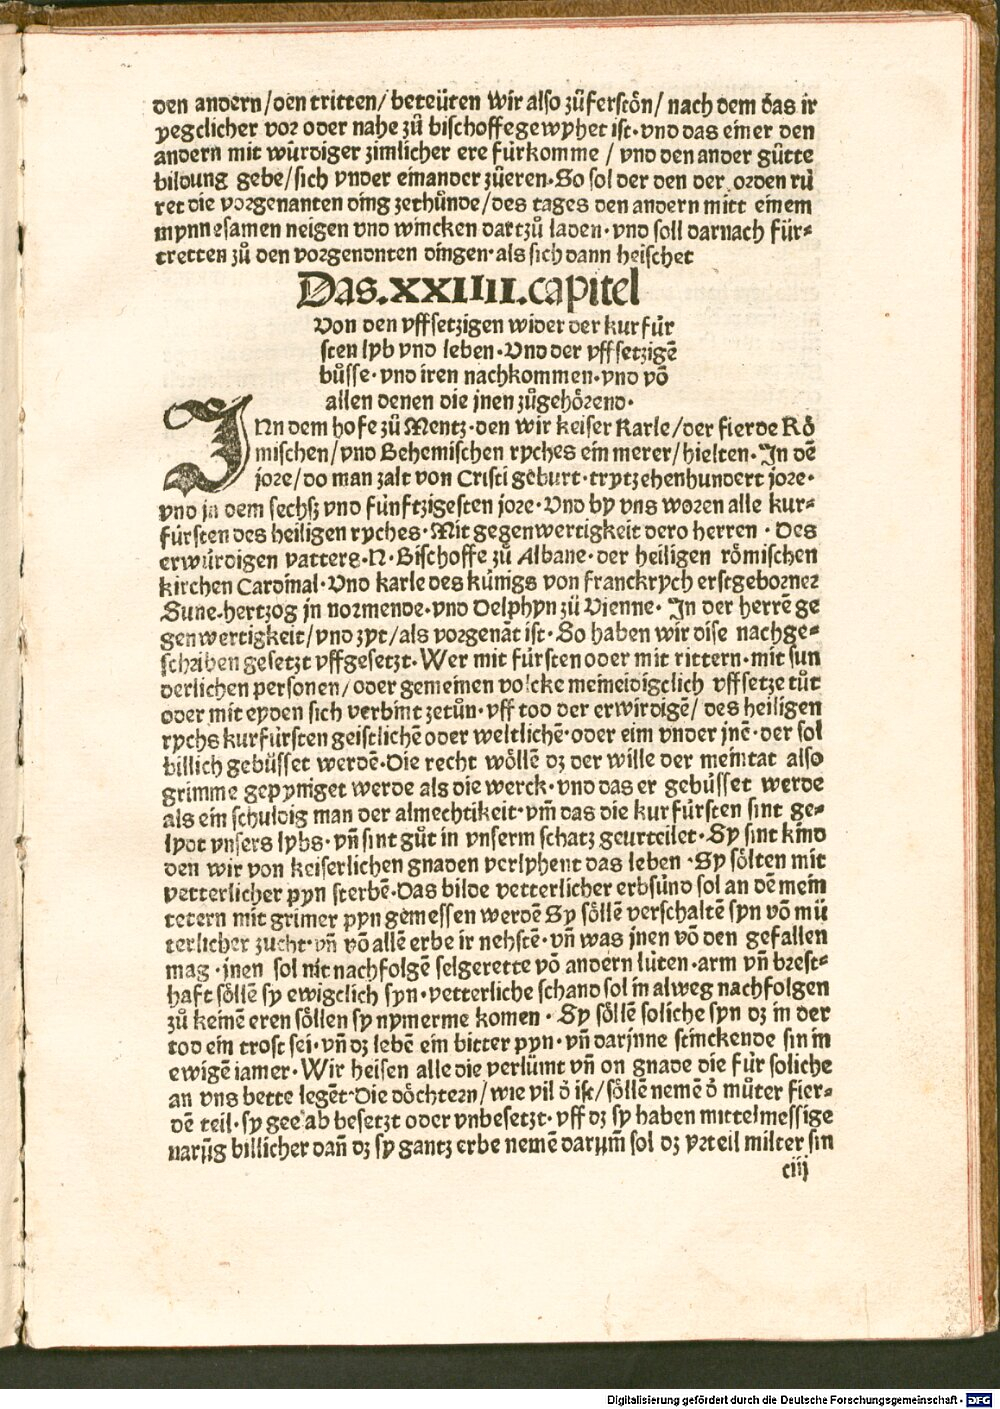 den andern/den tritten/ beteüten Wir also zůferstön/ nach dem das ir
yegclicher vor oder nahe zů bischoffe gewyhet ist·vnd das einer den
andern mit würdiger zimlicher ere fürkomme / vnd den ander gůtte
bildung gebe/sich vnder einander zůeren·So sol der den der orden rů
ret die vorgenanten ding zethůnde/des tages den andern mitt einem
mynnesamen neigen vnd wincken dartzů laden·vnd soll darnach für⸗
tretten zů den vorgenanten dingen·als sich dann heischet
Das.XXIIII.capitel
Von den vffsetzigen wider der kurfür
sten lyb vnd leben·Vnd der vffsetzigē
bůsse·vnd iren nachkommen·vnd vō
allen denen die jnen zůgehörend·
INn dem hofe zů Mentz·den wir keiser Karle/der fierde Rö
mischen/vnd Behemischen ryches ein merer/hielten·In dē
jore/do man zalt von Cristi geburt·trytzehenhundert jore·
vnd in dem sechsz vnd fünftzigesten jore·Vnd by vns woren alle kur⸗
fürsten des heiligen ryches·Mit gegenwertigkeit dero herren · Des
erwürdigen vatters·N·Bischoffe zů Albane·der heiligen römischen
kirchen Cardinal·Vnd karle des künigs von franckrych erstgeborner
Sune·hertzog jn normende·vnd Delphyn zů Vienne· In der herrē ge
genwertigkeit/vnd zyt/als vorgenāt ist·So haben wir dise nachge⸗
schriben gesetzt vffgesetzt·Wer mit fürsten oder mit rittern·mit sun
derlichen personen/oder gemeinen volcke meineidigclich vffsetze tůt
oder mit eyden sich verbint zetůn·vff tod der erwirdigē/ des heiligen
rychs kurfürsten geistlichē oder weltlichē·oder eim vnder jnē·der sol
billich gebüsset werdē·Die recht wöllē dz der wille der meintat also
grimme gepyniget werde als die werck·vnd das er gebüsset werde
als ein schuldig man der almechtikeit·vm̄ das die kurfürsten sint ge⸗
lydt vnsers lybs·vn̄ sint gůt in vnserm schatz geurteilet·Sy sint kind
den wir von keiserlichen gnaden verlyhent das leben ·Sy sölten mit
vetterlicher pyn sterbē·Das bilde vetterlicher erbsünd sol an dē mein
tetern mit grimer pyn gemessen werdē Sy söllē verschaltē syn vō mü
terlicher zucht·vn̄ vō allē erbe ir nehstē·vn̄ was jnen vō den gefallen
mag ·jnen sol nit nachfolgē selgerette vō andern lüten·arm vn̄ brest⸗
haft söllē sy ewigclich syn·vetterliche schand sol in alweg nachfolgen
zů keinē eren söllen sy nymerme komen · Sy söllē soliche syn dz in der
tod ein trost sei·vn̄ dz lebē ein bitter pyn·vn̄ darjnne stinckende sin in
ewigē iamer·Wir heisen alle die verlümt vn̄ on gnade die für soliche
an vns bette legēt·Die döchtern/wie vil d̄ ist/söllē nemē d̄ můter fier⸗
dē teil·sy gee ab besetzt oder vnbesetzt·vff dz sy haben mittelmessige
narūg billicher dan̄ dz sy gantz erbe nemē darum̄ sol dz vrteil milter sin
ciij
Digitalisierung gefördert durch die Deutsche Forschungsgemeinschaft - DFG